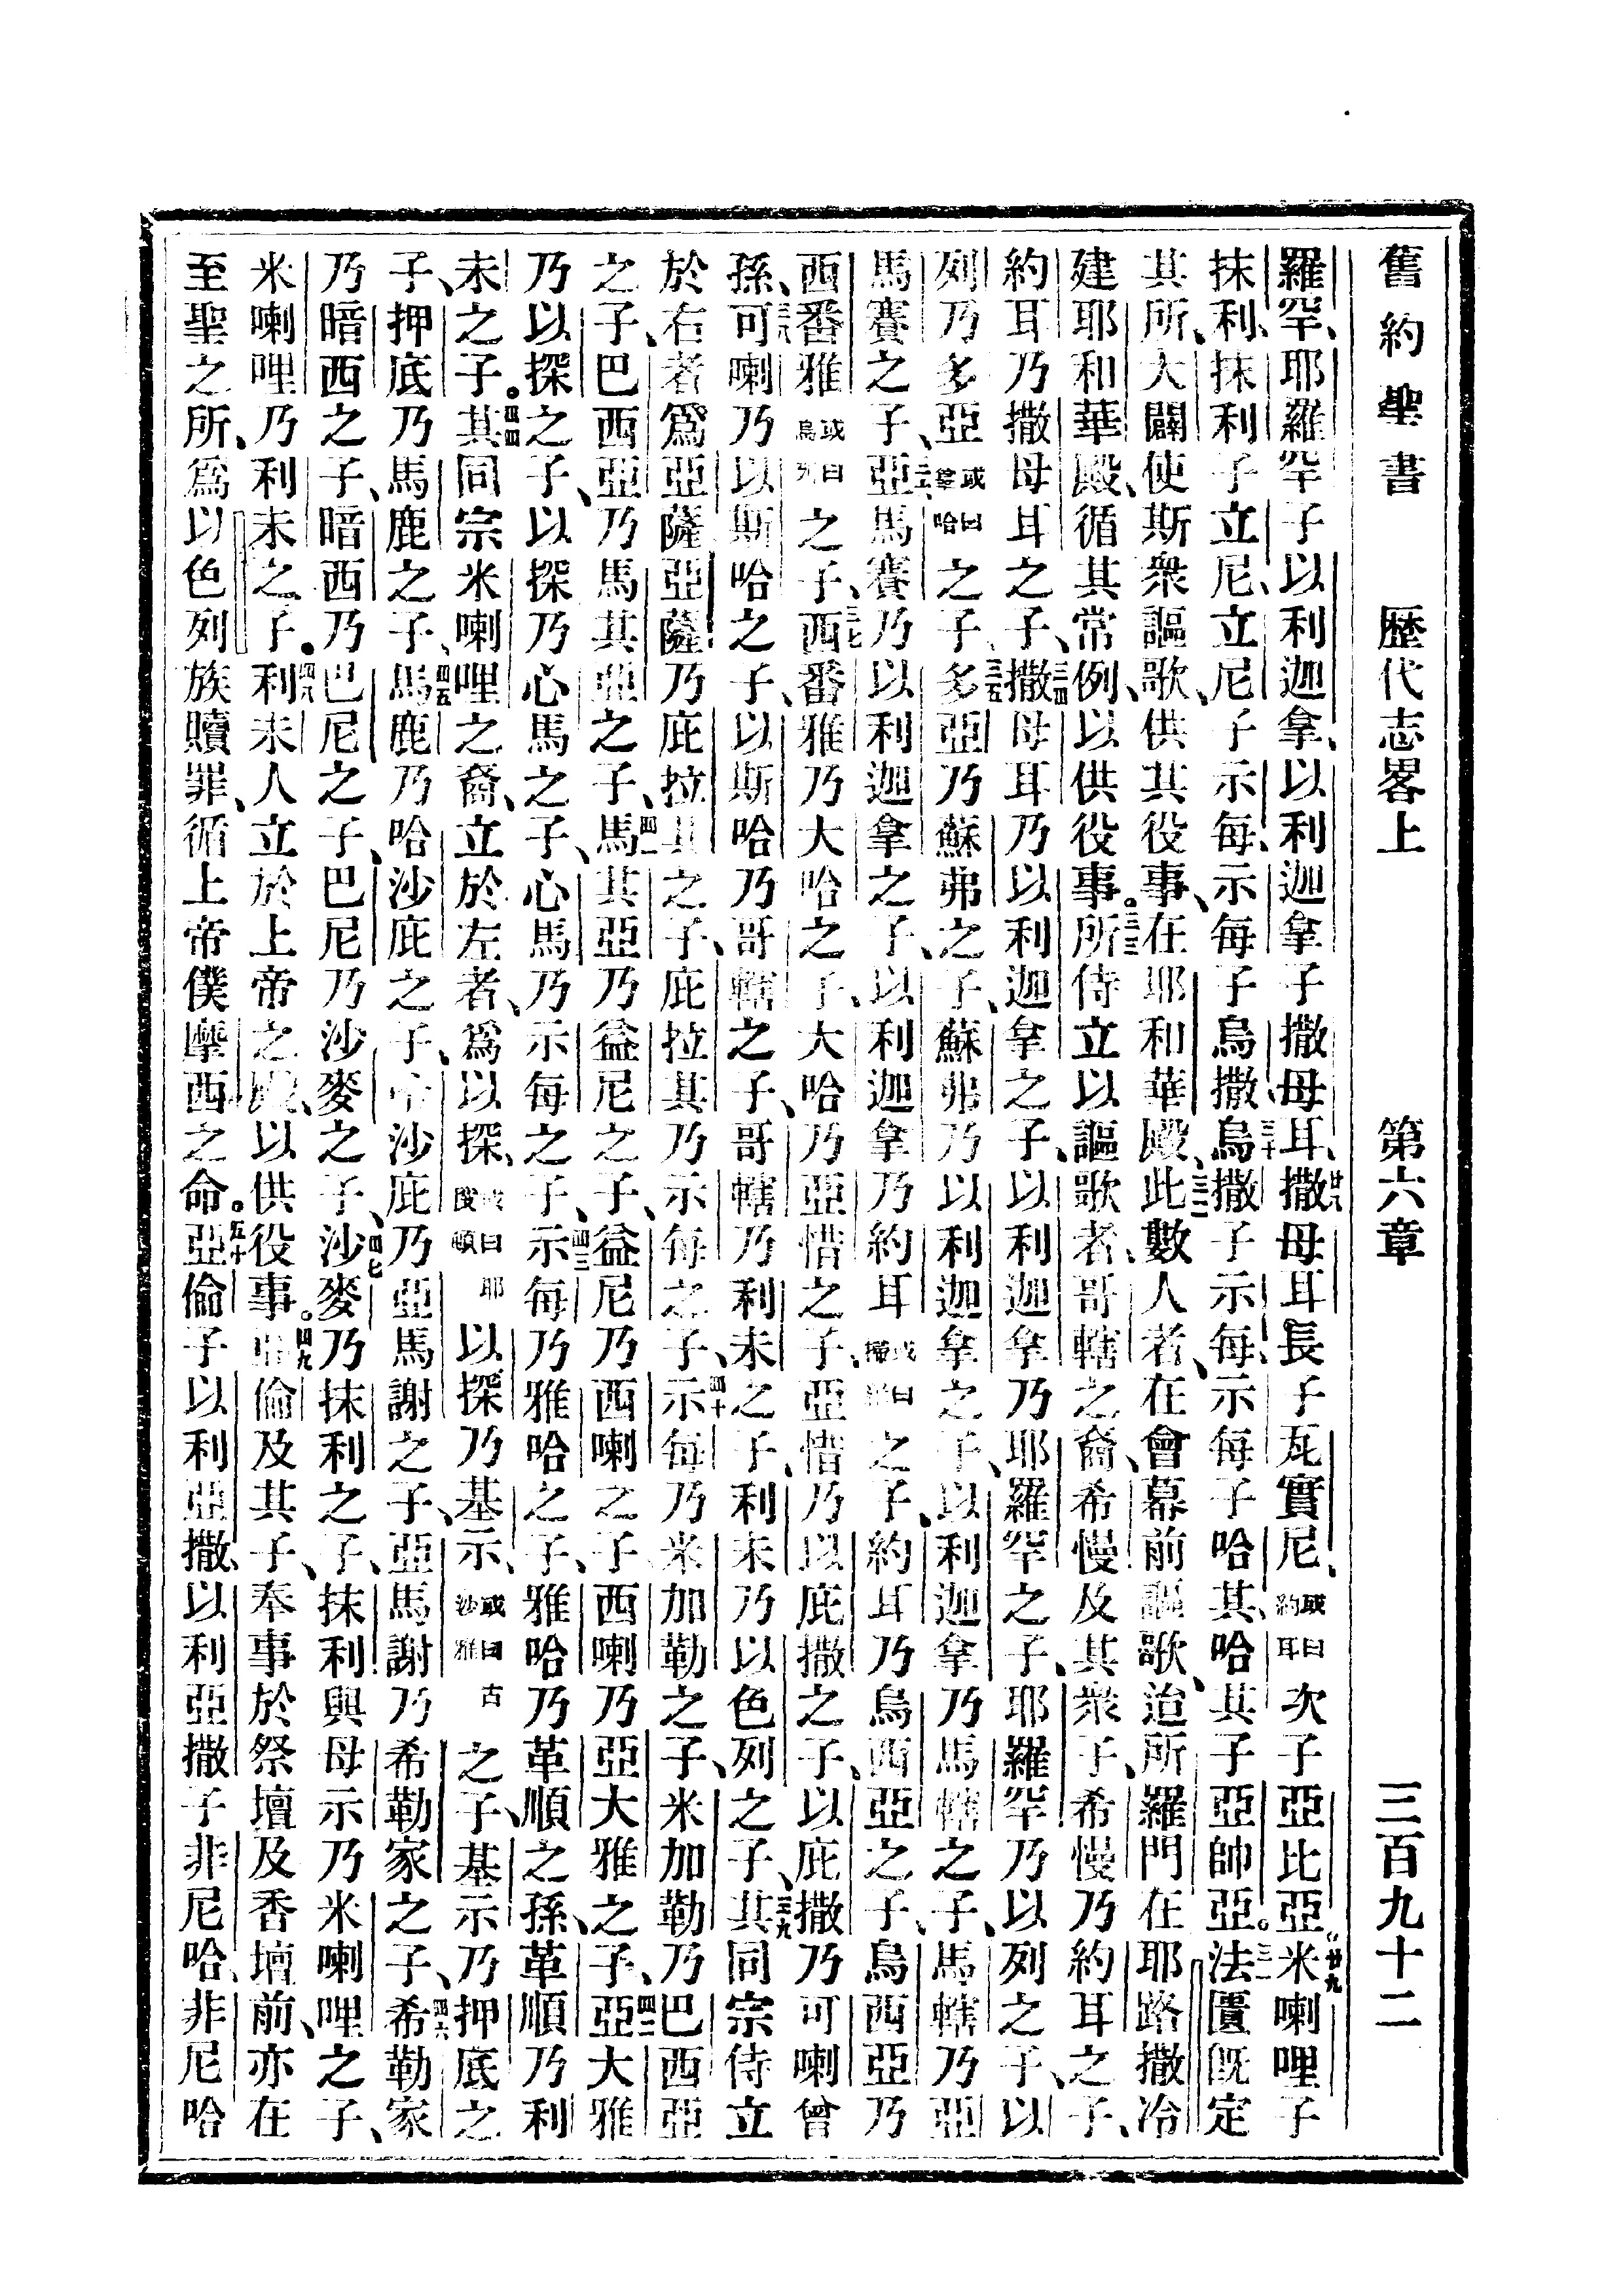 舊約聖書 歷代志畧上 第六章 三百九十二
羅罕、耶羅罕子以利迦拿、以利迦拿子撒母耳、廿八撒母耳長子瓦實尼、或曰約耳次子亞比亞。廿九米喇哩子
抹利、抹利子立尼、立尼子示每、示每子烏撒、三十烏撒子示每、示每子哈其、哈其子亞帥亞。三一法匱旣定
其所、大闢使斯衆謳歌、供其役事、在耶和華殿、三二此數人者、在會幕前謳歌、迨所羅門在耶路撒冷
建耶和華殿、循其常例、以供役事。三三所侍立以謳歌者、哥轄之裔希慢及其衆子、希慢乃約耳之子、
約耳乃撒母耳之子、三四撒母耳乃以利迦拿之子、以利迦拿乃耶羅罕之子、耶羅罕乃以列之子、以
列乃多亞或曰篤哈之子、三五多亞乃蘇弗之子、蘇弗乃以利迦拿之子、以利迦拿乃馬轄之子、馬轄乃亞
馬賽之子、三六亞馬賽乃以利迦拿之子、以利迦拿乃約耳或曰之子、約耳乃烏西亞之子、烏西亞乃
西番雅或曰烏列之子、三七西番雅乃大哈之子、大哈乃亞惜之子、亞惜乃以庇撒之子、以庇撒乃可喇曾
孫、三八可喇乃以斯哈之子、以斯哈乃哥轄之子、哥轄乃利未之子、利未乃以色列之子、三九其同宗侍立
於右者、爲亞薩、亞薩乃庇拉其之子、庇拉其乃示每之子、四十示每乃米加勒之子、米加勒乃巴西亞
之子、巴西亞乃馬其亞之子、四一馬其亞乃益尼之子、益尼乃西喇之子、西喇乃亞大雅之子、四二亞大雅
乃以探之子、以探乃心馬之子、心馬乃示每之子、四三示每乃雅哈之子、雅哈乃革順之孫、革順乃利
未之子。四四其同宗米喇哩之裔、立於左者、爲以探、或曰耶度頓以探乃基示、或曰古沙雅之子、基示乃押底之
子、押底乃馬鹿之子、四五馬鹿乃哈沙庇之子、哈沙庇乃亞馬謝之子、亞馬謝乃希勒家之子、四六希勒家
乃暗西之子、暗西乃巴尼之子、巴尼乃沙麥之子、四七沙麥乃抹利之子、抹利與母示乃米喇哩之子、
米喇哩乃利未之子。四八利未人立於上帝之殿、以供役事。四九亞倫及其子、奉事於祭壇及香壇前、亦在
至聖之所、爲以色列族贖罪、循上帝僕摩西之命。五十亞倫子以利亞撒、以利亞撒子非尼哈、非尼哈